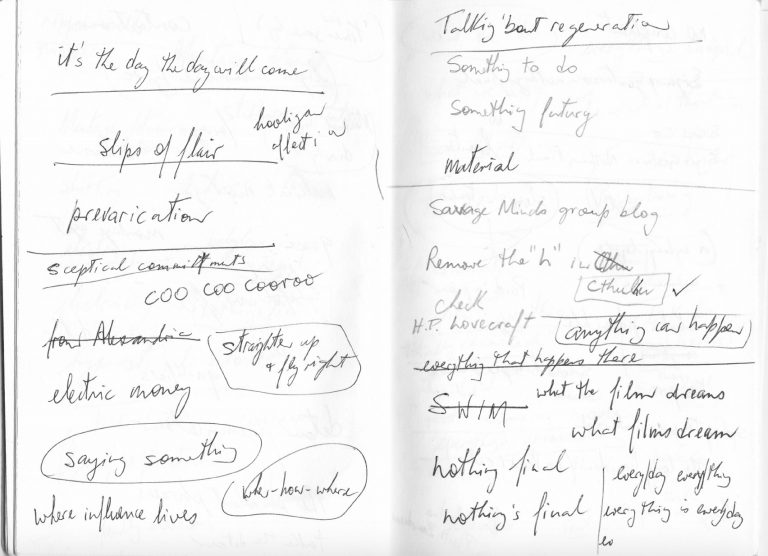 it's the day the day will come
slips of flair
hooligan
affection
prevarication
sceptical commitments
COO COO COOROO
from Alexandria
straighter up
& fly right
electric money
saying something
who-how-where
where influence lives
Talking 'bout regeneration
Something to do
Something futury
material
Savage Minds group blog
Remove the "h" in
Cthulhu ✓
check
H.P. Lovecraft
anything can happen
everything that happens there
SWIM
what the film dreams
what films dream
nothing final
nothing's final
everyday everything
everything is everyday
ev